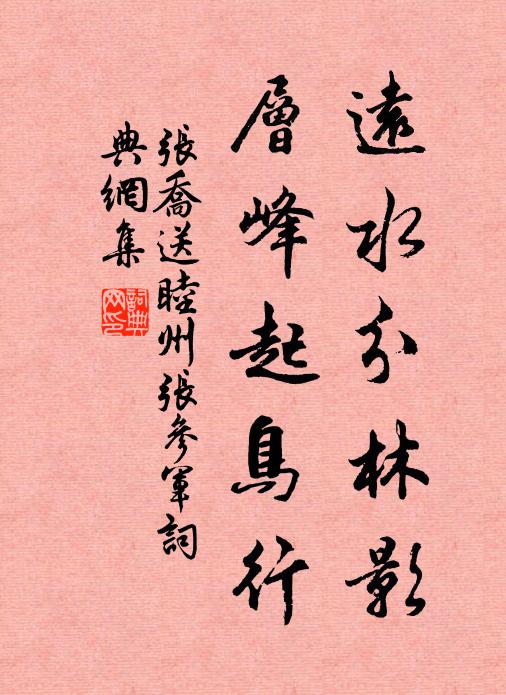 遠水分林影
層峰起鳥行
張喬送睦州張參軍詞
典網集
詞典網印